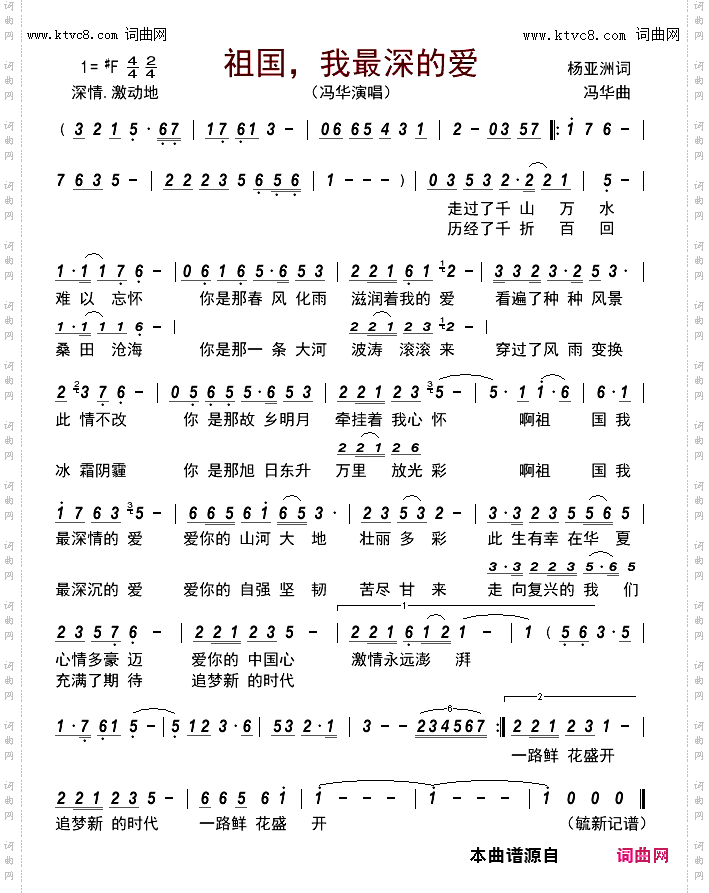 www.ktvc8.com 词曲网 www.ktvc8.com 词曲网
祖国，我最深的爱
1=♯F 4/4 2/4
杨亚洲词
深情.激动地
（冯华演唱）
冯华曲
( 3 2 1 5 · 67 | 17 61 3 - | 06 65 4 3 1 | 2 - 03 57 |: 1 7 6 - |
7 6 3 5 - | 2 2 2 3 5 6 5 6 | 1 - - - ) | 03 53 2·2 2 1 | 5 -
走过了千 山 万 水
历经了千 折 百 回
1·1 1 7 6 - | 06 16 5·6 53 | 22 21 61 1 2 - | 332 3·2 53· |
难 以 忘怀 你是那春 风 化雨 滋润着我的 爱 看遍了种 种 风景
1·1 1 1 6 - | 2 2 1 2 3 1 2 - |
桑 田 沧海 你是那一 条 大河 波涛 滚滚 来 穿过了风 雨 变换
2 2 3 7 6 - | 05 65 5·6 53 | 2 2 1 2 3 3 5 - | 5· 1 1·6 | 6·1 |
此 情不改 你 是那故 乡明月 牵挂着 我心 怀 啊祖 国我
2 2 1 2 6
冰 霜阴霾 你 是那旭 日东升 万里 放光 彩 啊祖 国我
1 7 6 3 3 5 - | 6 6 5 6 1 6 5 3 · | 2 3 5 3 2 - | 3·3 2 3 5 5 6 5 |
最深情的 爱 爱你的 山河 大 地 壮丽 多 彩 此 生有幸 在华 夏
3·3 2 3 2 3 5·6 5
最深沉的 爱 爱你的 自强 坚 韧 苦尽 甘 来 走 向复兴的 我 们
1
2 3 5 7 6 - | 2 2 1 2 3 5 · | 2 2 1 6 1 2 1 - | 1 ( 5 6 3·5 |
心情多豪 迈 爱你的 中国心 激情永远澎 湃
充满了期 待 追梦新 的时代
6 2
1·7 61 5 - | 5 12 3·6 | 53 2·1 | 3 - - 234567 :| 2 2 1 2 3 1 - |
一路鲜 花盛开
2 2 1 2 3 5 - | 6 6 5 6 1 | 1 - - - | 1 - - - | 1 0 0 0 ‖
追梦新 的时代 一路鲜 花盛 开 （毓新记谱）
本曲谱源自 词曲网